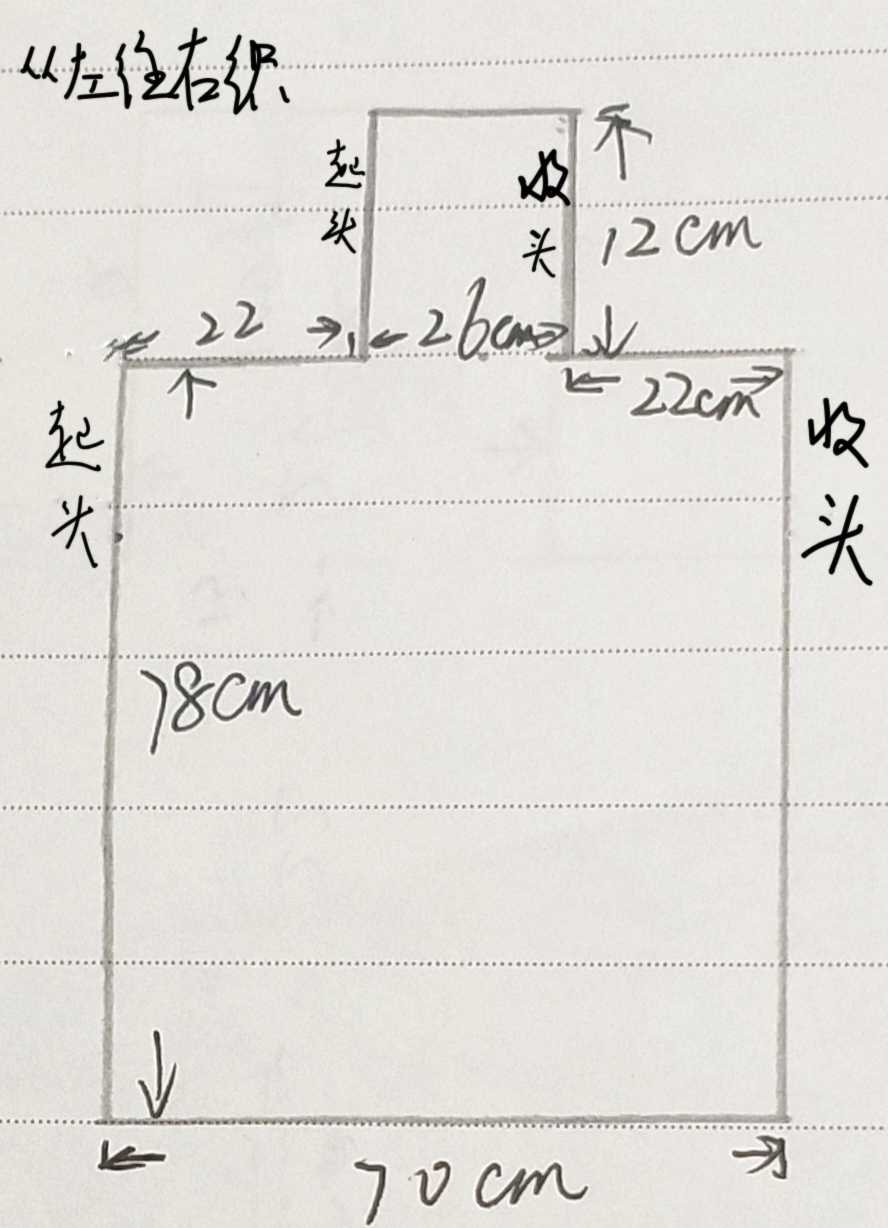 从左往右织、
起头
收头
12cm
22
26cm
22cm
起头
收头
78cm
70cm